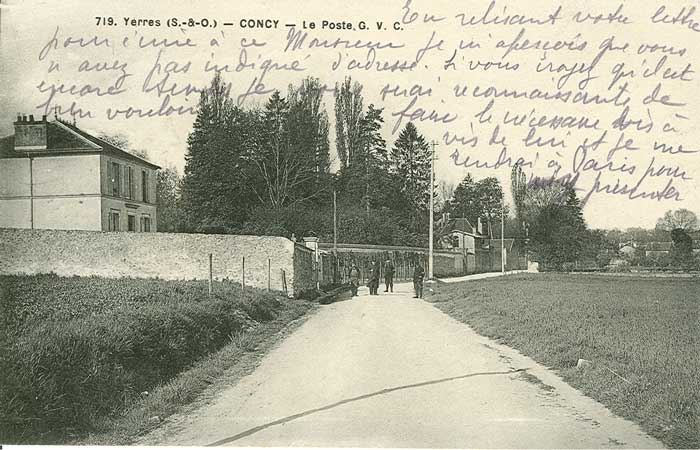 719. Yerres (S.-&-O.) — CONCY — Le Poste G. V. C.
En relisant votre lettre
pour à ce Monsieur je m'aperçois que vous
n'avez pas indiqué d'adresse. Si vous croyez qu'il est
encore temps je vous serai reconnaissante de
bien vouloir faire le nécessaire vis à
vis de lui et je me
rendrai à Paris pour
me présenter